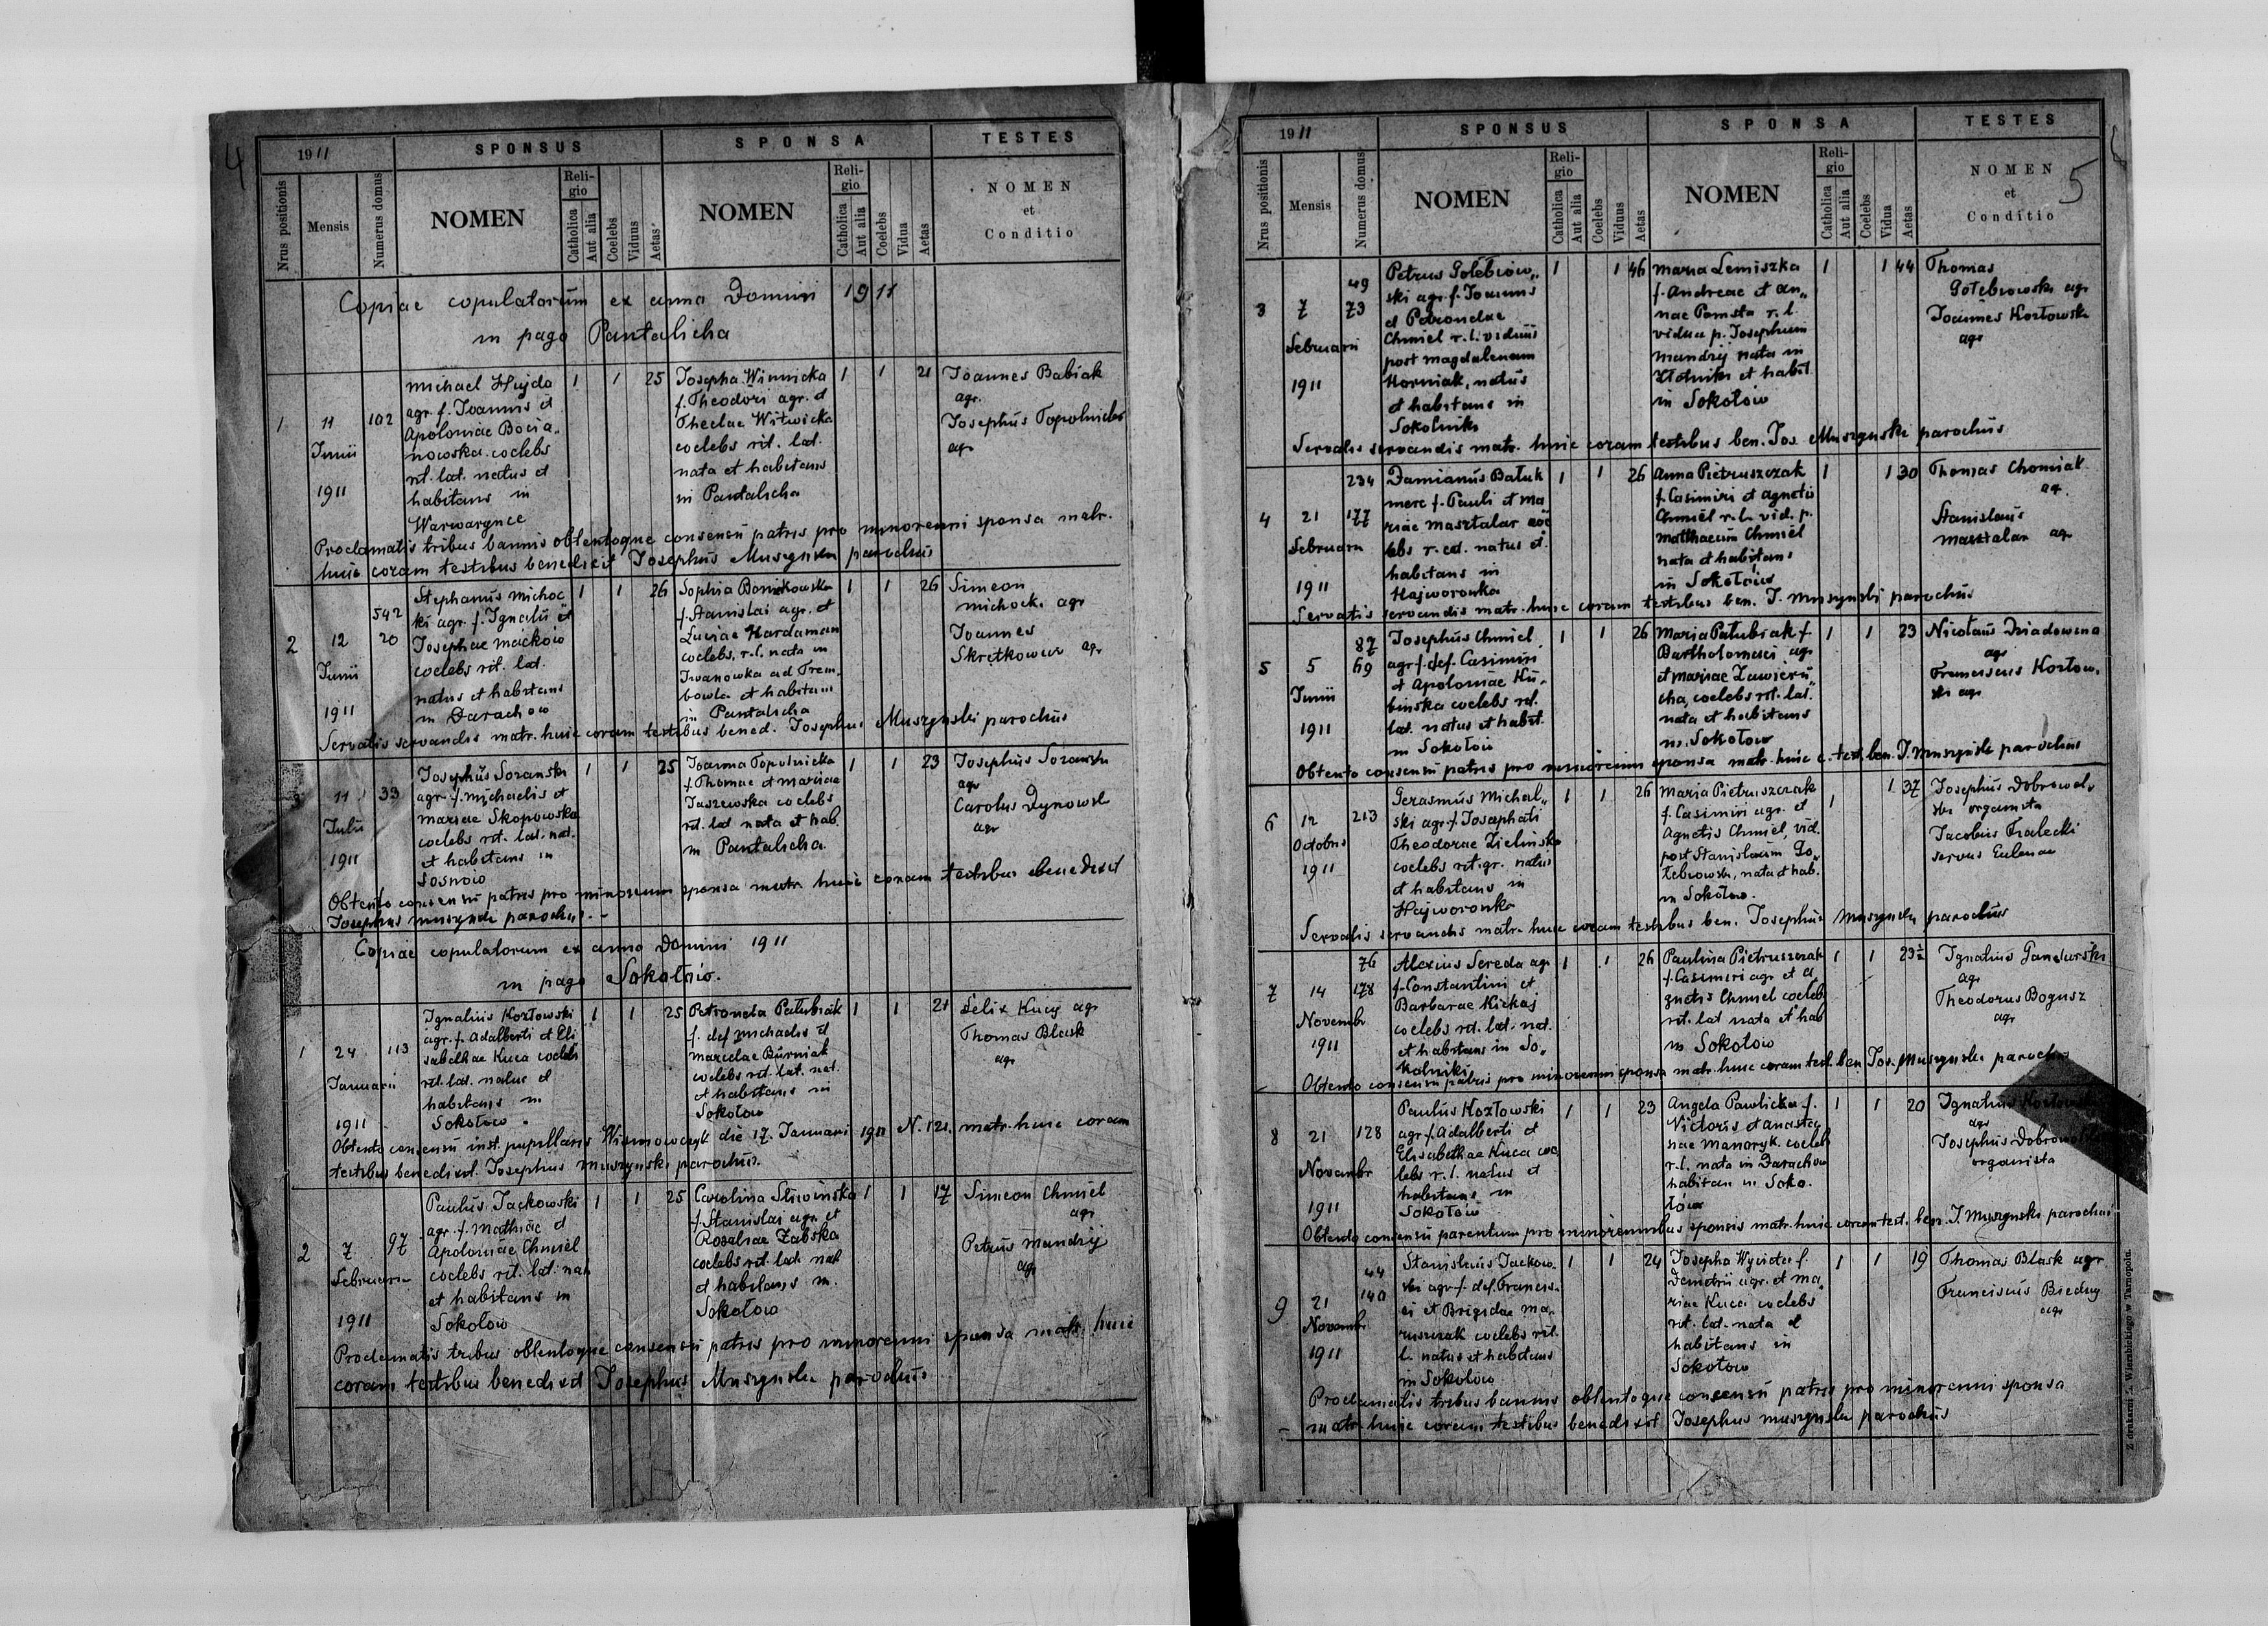 4
1911
SPONSUS
SPONSA
TESTES
Nrus positionis
Mensis
Numerus domus
NOMEN
Religio
Catholica
Aut alia
Coelebs
Viduus
Aetas
NOMEN
Religio
Catholica
Aut alia
Coelebs
Vidua
Aetas
NOMEN
et
Conditio
Copiae copulatorum ex anno Domini 1911
in pago Pantalicha
1
11
Junii
1911
102
Michael Hujda
agr. f. Joannis et
Apoloniae Bocia„
nowska coelebs
rit. lat. natus et
habitans in
Warwarynce
1 1 25
Josepha Winnicka
f. Theodori agr. et
Theclae Witwicka
coelebs rit. lat.
nata et habitans
in Pantalicha
1 1 21
Joannes Babiak
agr.
Josephus Topolnicki
agr
Proclamatis tribus bannis obtentoque consensu patris pro minorenni sponsa matr.
huic coram testibus benedixit Josephus Muszynski parochus
2
12
Junii
1911
542
20
Stephanus Michoc
ki agr. f. Ignatii et
Josephae Maćków
coelebs rit. lat.
natus et habitans
in Darachow
1 1 26
Sophia Bonikowska
f. Stanislai agr. et
Luciae Hardaman
coelebs, r. l. nata in
Iwanowka ad Trem„
bowla et habitans
in Pantalicha
1 1 26
Simeon
Michocki agr
Joannes
Skrętkowicz agr
Servatis servandis matr. huic coram testibus bened. Josephus Muszynski parochus
3
11
Julii
1911
33
Josephus Soranski
agr. f. Michaelis et
Mariae Skopowska
coelebs rit. lat. nat.
et habitans in
Sosnow
1 1 25
Joanna Topolnicka
f. Thomae et Mariae
Jaszewska coelebs
rit. lat nata et hab.
in Pantalicha.
1 1 23
Josephus Soranski
agr
Carolus Dynowsk
agr
Obtento consensu patris pro minorenni sponsa matr. huic coram testibus benedixit
Josephus Muszynski parochus. -
Copiae copulatorum ex anno Domini 1911
in pago Sokołów.
1
24
Januarii
1911
113
Ignatius Kozłowski
agr. f. Adalberti et Eli
sabethae Kuca coelebs
rit. lat. natus et
habitans in
Sokołow.
1 1 25
Petronela Pałubiak
f. def Michaelis et
Marielae Burniak
coelebs rit. lat. nat.
et habitans in
Sokołow
1 1 21
Felix Kucy agr
Thomas Blask
agr
Obtento consensu inst. pupillaris Wisniowczyk die 17. Januarii 1911 N. 121. matr. huic coram
testibus benedixit. Josephus Muszynski parochus.
2
7
Februarii
1911
97
Paulus Jackowski
agr. f. Mathiae et
Apoloniae Chmiel
coelebs rit. lat. nat
et habitans in
Sokołow
1 1 25
Carolina Sliwinska
f. Stanislai agr. et
Rosaliae Zabska
coelebs rit. lat. nat
et habitans in.
Sokołow
1 1 17
Simeon Chmiel
agr
Petrus Mandrij
agr
Proclamatis tribus obtentoque consensu patris pro minorenni sponsa matr. huic
coram testibus benedixit Josephus Muszynski parochus
5
1911
SPONSUS
SPONSA
TESTES
Nrus positionis
Mensis
Numerus domus
NOMEN
Religio
Catholica
Aut alia
Coelebs
Viduus
Aetas
NOMEN
Religio
Catholica
Aut alia
Coelebs
Vidua
Aetas
NOMEN
et
Conditio
3
7
Februarii
1911
49
73
Petrus Gołębiow„
ski agr. f. Joannis
et Petronelae
Chmiel r. l. viduus
post Magdalenam
Horniak, natus
et habitans in
Sokolniki
1 1 46
Maria Lemiszka
f. Andreae et An„
nae Pamsta r. l.
vidua p. Josephum
Mandrij nata in
Złotniki et habit.
in Sokołow
1 1 44
Thomas
Gołębiowski agr
Joannes Kozłowski
agr
Servatis servandis matr. huic coram testibus ben. Jos Muszynski parochus
4
21
Februarii
1911
234
177
Damianus Bałuk
merc f. Pauli et Ma
riae Masztalar coe
lebs r. cat. natus et
habitans in
Hajworonka
1 1 26
Anna Pietruszczak
f. Casimiri et Agnetis
Chmiel r. l. vid. p.
Matthaeum Chmiel
nata et habitans
in Sokołów
1 1 30
Thomas Chomiak
agr.
Stanislaus
Masztalar agr
Servatis servandis matr. huic coram testibus ben. J. Muszynski parochus
5
5
Junii
1911
87
69
Josephus Chmiel
agr. f. def. Casimiri
et Apoloniae Ku„
binska coelebs rit.
lat. natus et habit.
in Sokołow
1 1 26
Maria Pałubiak f.
Bartholomaei agr
et Mariae Zawieru„
cha, coelebs rit. lat.
nata et habitans
in Sokołow
1 1 23
Nicolaus Dziadowna
agr
Franciscus Kozłow.
ski agr
Obtento consensu patris pro minorenni sponsa matr. huic c. test. ben. J. Muszynski parochus
6
12
Octobris
1911
213
Gerasmus Michal„
ski agr. f. Josaphati
Theodorae Zielinska
coelebs rit. gr. natus
et habitans in
Hajworonka
1 1 26
Maria Pietruszczak
f. Casimiri agr. et
Agnetis Chmiel, vid.
post Stanislaum Go„
łebiowski, nata et hab.
in Sokołow.
1 1 37
Josephus Dobrowol„
ski organista
Jacobus Tralecki
servus
Servatis servandis matr. huic coram testibus ben. Josephus Muszynski parochus
7
14
Novembr
1911
76
178
Alexius Sereda agr
f. Constantini et
Barbarae Kickaj
coelebs rit. lat. nat.
et habitans in So„
kolniki
1 1 26
Paulina Pietruszczak
f. Casimiri agr et A
gnetis Chmiel coelebs
rit. lat nata et hab
in Sokołow
1 1 23½
Ignatius Gandurski
agr
Theodorus Bogusz
agr
Obtento consensu patris pro minorenni sponsa matr. huic coram test. ben. Jos. Muszynski parochus
8
21
Novembr
1911
128
Paulus Kozłowski
agr. f. Adalberti et
Elisabethae Kuca coe
lebs r. l. natus et
habitans in
Sokołow
1 1 23
Angela Pawlicka f.
Victoris et Anasta
siae Manoryk. coelebs
r. l. nata in Darachow
habitan in Soko.
łów
1 1 20
Ignatius Kozłowski
agr
Josephus Dobrowolski
organista
Obtento consensu parentum pro minorennibus sponsis matr. huic coram test. ben. J. Muszynski parochus
9
21
Novembr
1911
44
140
Stanislaus Jackow.
ski agr. f. def. Francis„
ci et Brigidae Ma„
ruszczak coelebs rit.
l. natus et habitans
in Sokołow
1 1 24
Josepha Wycida f.
Demetrii agr. et Ma„
riae Kuca coelebs
rit. lat. nata et
habitans in
Sokołow
1 1 19
Thomas Blask agr
Franciscus Biedny
agr
Proclamatis tribus bannis obtentoque consensu patris pro minorenni sponsa
matr. huic coram testibus benedixit Josephus Muszynski parochus
Z drukarni J. Wierzbickiego w Tarnopolu.